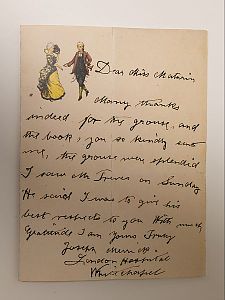 Dear Miss Maturin
Many thanks
indeed for the grouse, and
the book, you so kindly sent
me, the grouse were splendid
I saw Mr Treves on Sunday
He said I was to give his
best respects to you With much
Gratitude I am Yours Truly
Joseph Merrick
London Hospital
Whitechapel